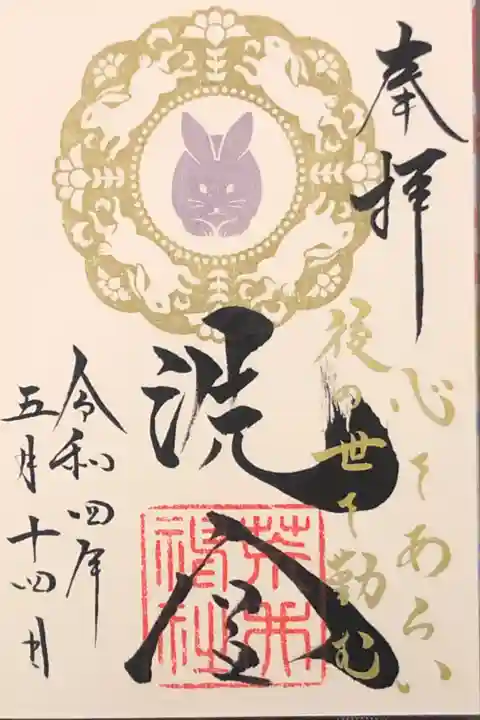 奉拝
心をあらい
後の世を勤む
洗
令和四年
五月十四日
神社